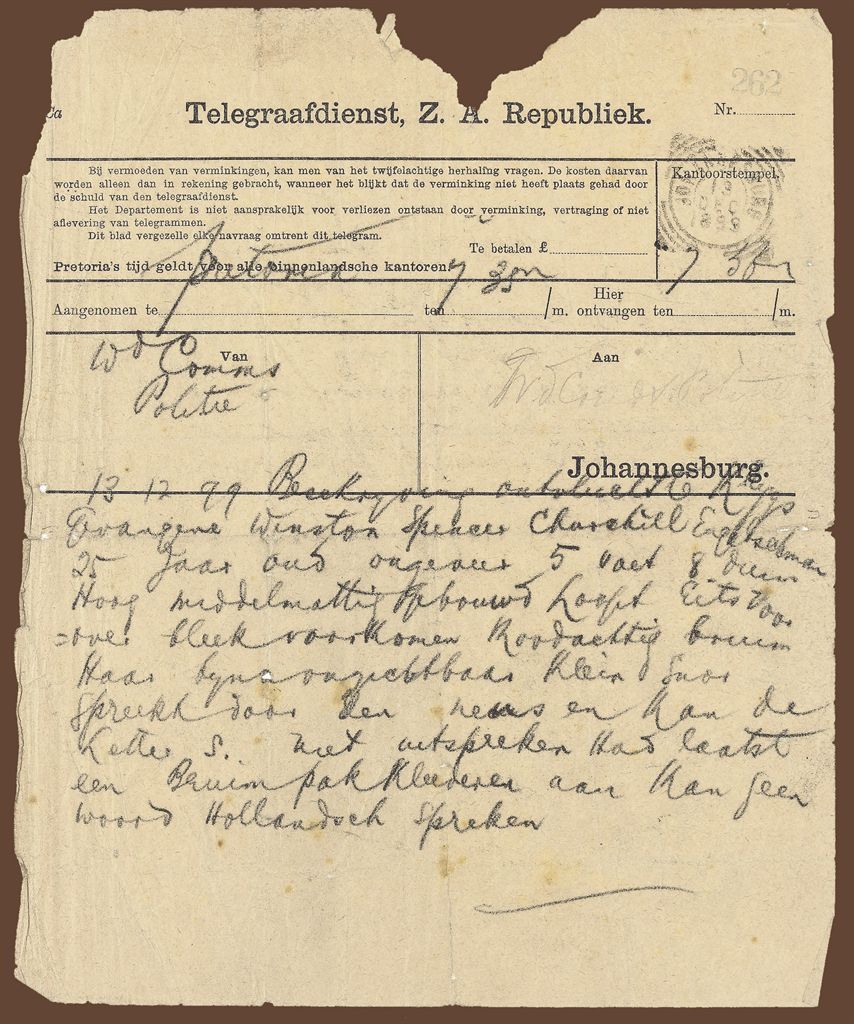 262
Telegraafdienst, Z. A. Republiek.
Nr.
Bij vermoeden van verminkingen, kan men van het twijfelachtige herhaling vragen. De kosten daarvan
worden alleen dan in rekening gebracht, wanneer het blijkt dat de verminking niet heeft plaats gehad door
de schuld van den telegraafdienst.
Het Departement is niet aansprakelijk voor verliezen ontstaan door verminking, vertraging of niet
aflevering van telegrammen.
Dit blad vergezelle elke navraag omtrent dit telegram.
Te betalen £
Pretoria's tijd geldt voor alle binnenlandsche kantoren
Kantoorstempel.
Pretoria 7
Aangenomen te ten /m. Hier ontvangen ten /m.
Van
Aan
Wd Comms
Politie
Johannesburg.
13 12 99 Beskryving ontvluchtte Krygs
Gevangene Winston Spencer Churchill Engelschman
25 Jaar oud ongeveer 5 voet 8 duim
Hoog middelmattig gebouwd Loopt Eits voor
=over bleek voorkomen Roodachtig bruin
Haar byna onzichtbaar Klein Snor
Spreekt door den neus en Kan de
Letter S. niet uitspreken Had laatst
een Bruin pak Kleederen aan Kan geen
woord Hollandsch Spreken